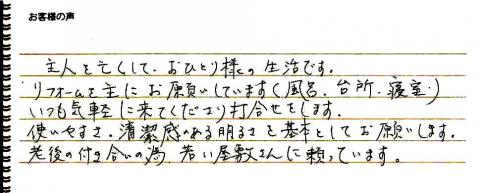 お客様の声
主人を亡くして、おひとり様の生活です。
リフォームを主にお願いしています(風呂、台所、寝室)
いつも気軽に来てくださり打合せをします。
使いやすさ、清潔感のある明るさを基本としてお願いします。
老後の付き合いの為、若い屋敷さんに頼っています。